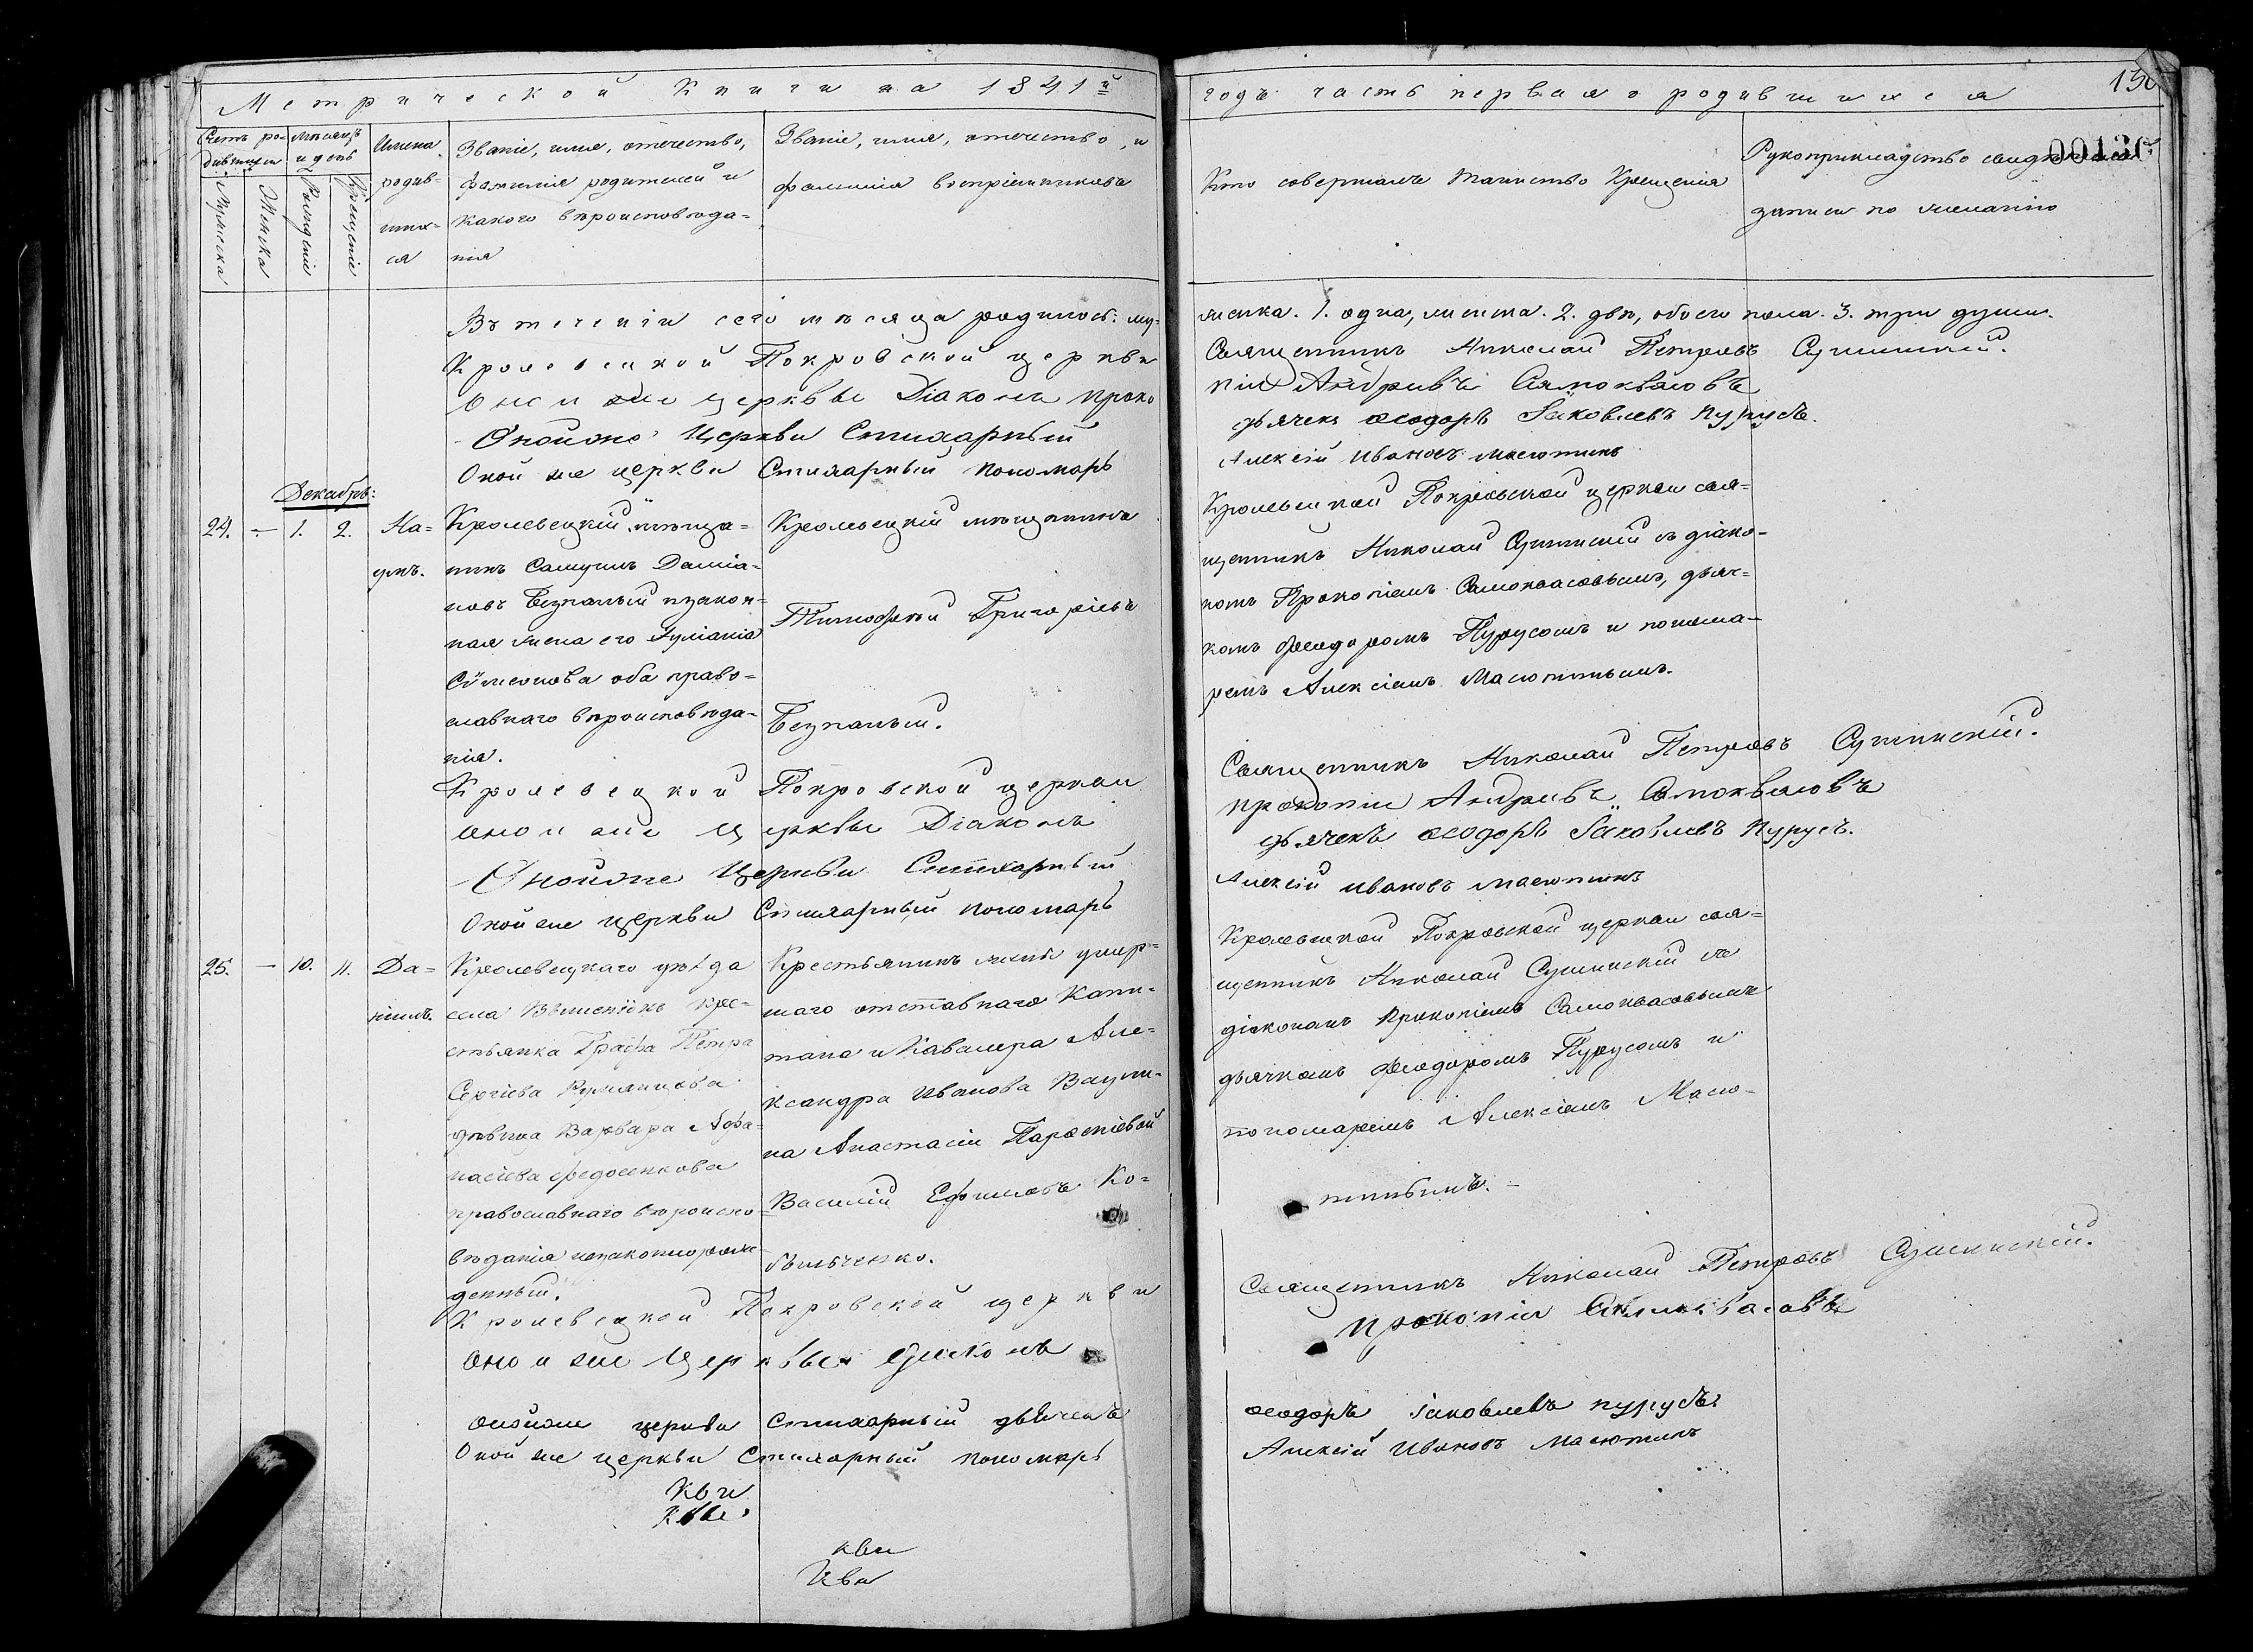 Метрической Книги на 1841й
годъ часть первая о родившихся
130
00130
Счетъ ро-
дившихся
Мужеска
Женска
Мѣсяцъ
и день
Рожденіе
Крещеніе
Имена
родив-
ших-
ся
Званіе, имя, отечество,
фамилія родителей и
какого вѣроисповѣда-
нія
Званіе, имя, отечество, и
фамилія воспріемниковъ
Кто совершалъ таинство Крещенія
Рукоприкладство
записи по желанію
Въ теченіи сего мѣсяца родилось: му-
жеска. 1. одна, женска. 2. двѣ, обоего пола. 3. три души.
Кролевецкой Покровской церкви
Священникъ Николай Петровъ
Оной же церквы Діаконъ Проко
піи Андривъ Самоквасовъ
Онойже Церкви Стихарный
дьячекъ Ѳеодоръ Іаковлевъ Пурусъ.
Оной же церкви Стихарный пономарь
Алексій Ивановъ Масютинъ
Декабрь:
24. — 1. 2.
На-
умъ.
Кролевецкій мѣща-
нинъ Самуилъ Даміа-
новъ Безпалый изакон-
ная жена его Іуліанія
Сѵмеонова оба право-
славнаго вѣроисповѣда-
нія.
Кролевецкій мѣщанинъ
Тимоѳей Григоріевъ
Безпалый.
Кролевецкой Покровской церкви свя-
щенникъ Николай съ діако-
номъ Прокопіемъ Самоквасовымъ, дьяч-
комъ Ѳеодоромъ Пурусомъ и понома-
ремъ Алексіемъ Масютинымъ.
Кролевецкой Покровской церкви
Священникъ Николай Петровъ
Оной же Церквы Діаконъ
Прокопіи Андривъ Самоквасовъ
Онойже Церкви Стихарный
дьячекъ Ѳеодоръ Іаковлевъ Пурусъ.
Оной же церкви Стихарный пономарь
Алексій Ивановъ Масютинъ
25. — 10. 11.
Да-
ніилъ.
Кролевецкаго уѣзда
села кре-
стьянка Графа Петра
Сергіева Румянцова
дѣвица Варвара Аѳа-
насіева Федосенкова
православнаго вѣроиспо-
вѣданія незаконнорож-
денный.
Крестьянинъ жены умер-
шаго отставнаго Капи-
тана и Кавалера Але-
ксандра Иванова
на Анастасіи
Василій Ефимовъ Ко-
быльченко.
Кролевецкой Покровской церкви свя-
щенникъ Николай съ
діакономъ Прокопіемъ Самоквасовымъ
дьячкомъ Ѳеодоромъ Пурусомъ и
пономаремъ Алексіемъ Масю-
тинымъ.
Кролевецкой Покровской церкви
Священникъ Николай Петровъ
Оной же Церквы Діаконъ
Прокопіи Самоквасовъ
онойже церкви Стихарный дьячекъ
Ѳеодоръ Іаковлевъ Пурусъ
Оной же церкви Стихарный пономарь
Алексій Ивановъ Масютинъ